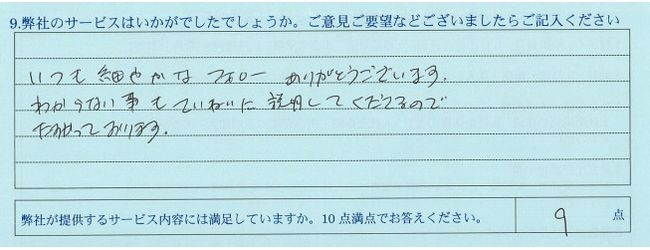 9.弊社のサービスはいかがでしたでしょうか。ご意見ご要望などございましたらご記入ください
いつも細やかなフォロー ありがとうございます.
わからない事もていねいに説明してくださるので
たすかっております.
弊社が提供するサービス内容には満足していますか。10点満点でお答えください。 9 点